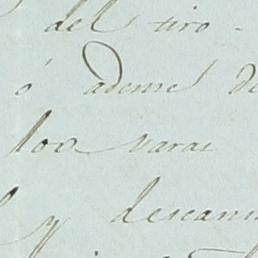 del tiro -
ó ademe de
los varas
y descan